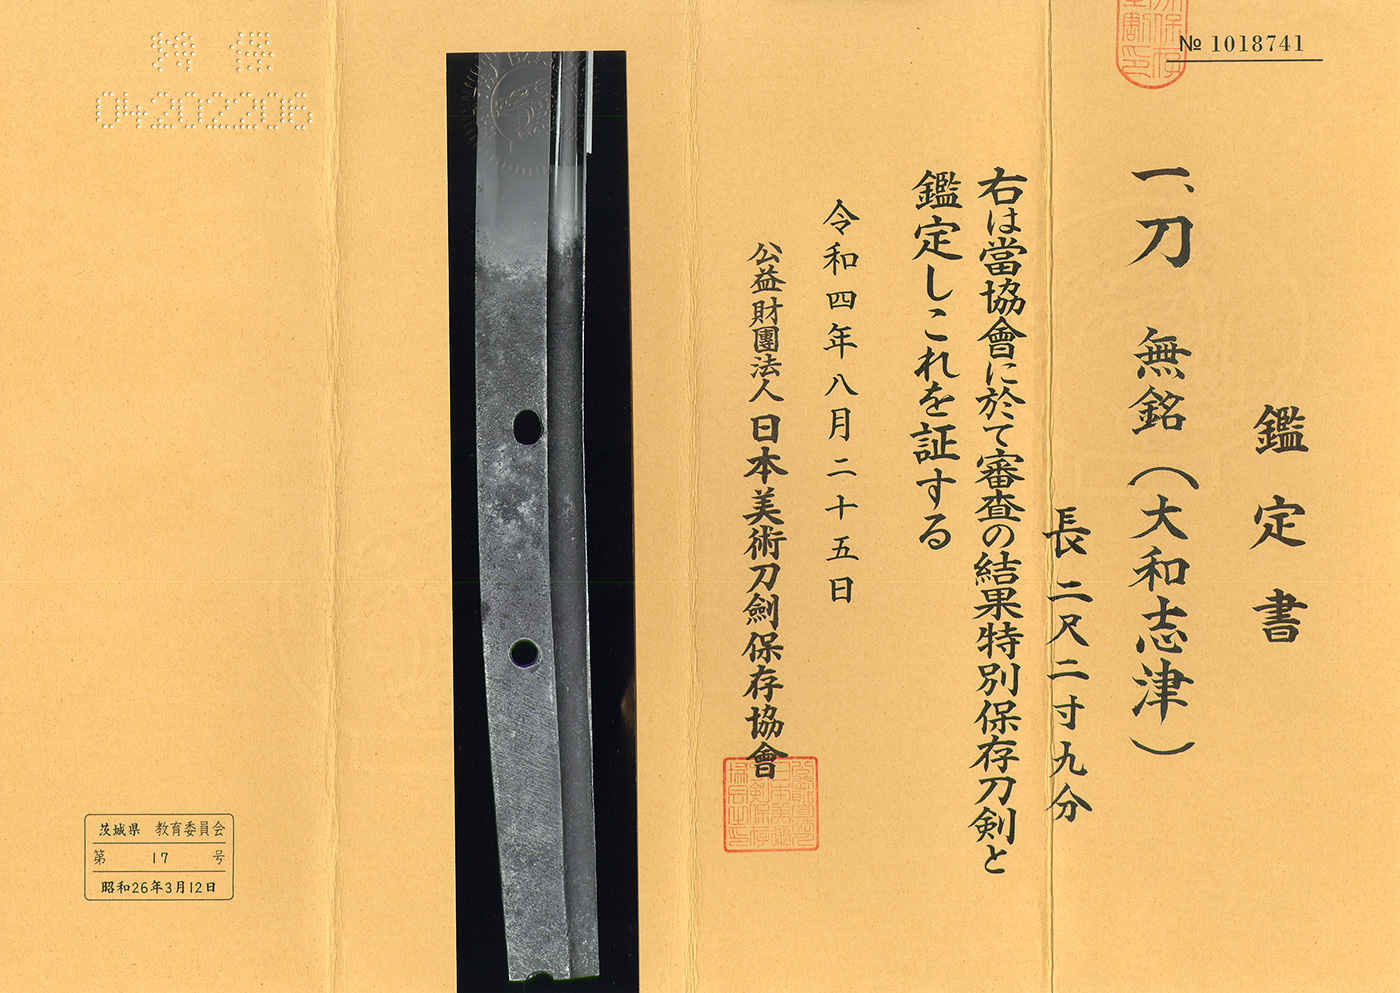 № 1018741
鑑定書
一、刀 無銘(大和志津)
長二尺二寸九分
右は當協會に於て審査の結果特別保存刀剣と
鑑定しこれを証する
令和四年八月二十五日
公益財團法人 日本美術刀劍保存協會
特保
04202206
茨城県 教育委員会
第 17 号
昭和26年3月12日